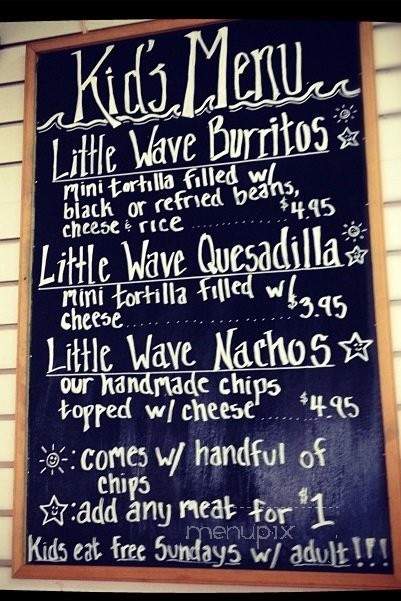 Kid's Menu
Little Wave Burritos
mini tortilla filled w/
black or refried beans,
cheese & rice .............. $4.95
Little Wave Quesadilla
mini tortilla filled w/
cheese.................. $3.95
Little Wave Nachos
our handmade chips
topped w/ cheese ...... $4.95
: comes w/ handful of
chips
: add any meat for $1
menupix
Kids eat free Sundays w/ adult!!!